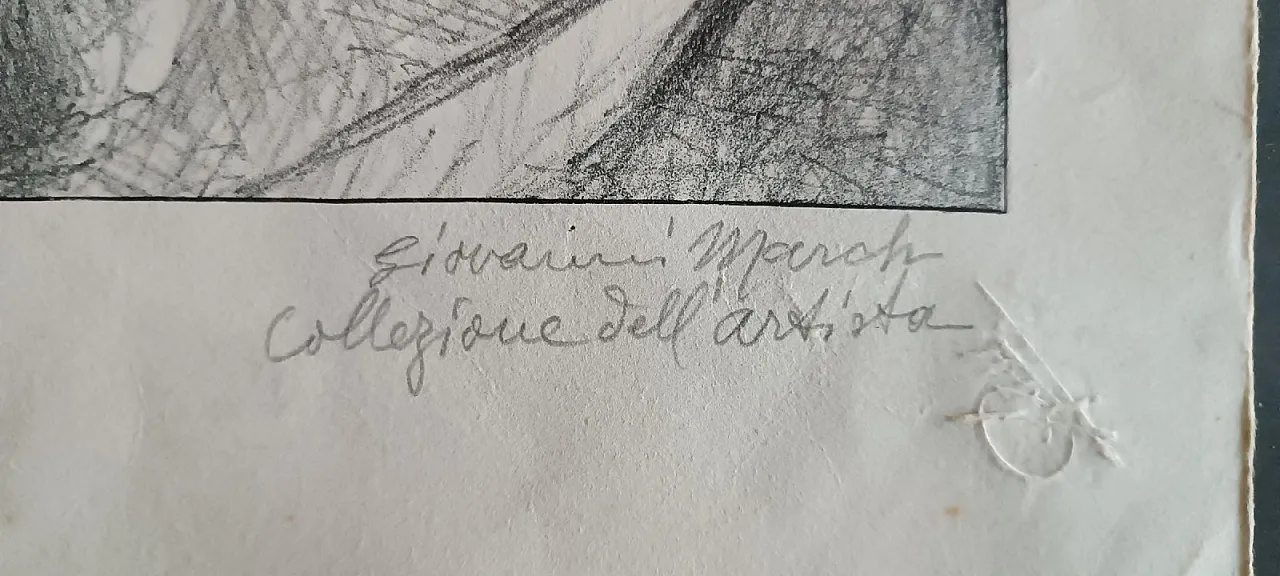 Giovanni March
Collezione dell'artista